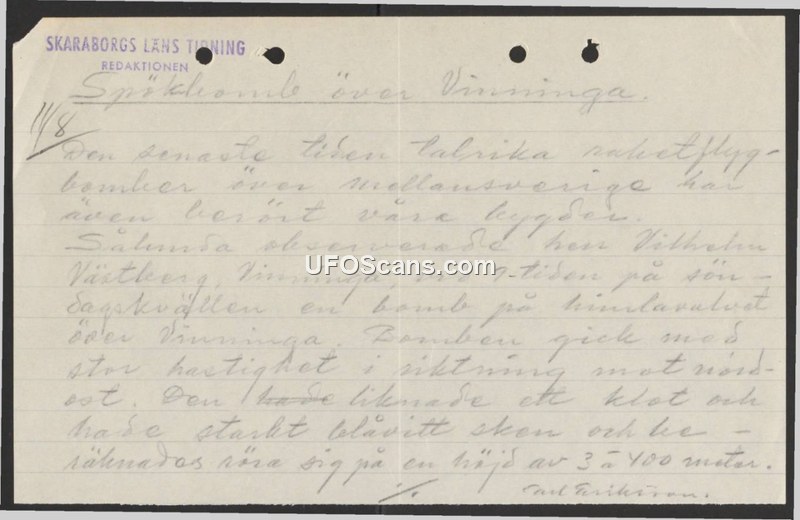 SKARABORGS LÄNS TIDNING
REDAKTIONEN
Spökbomb över Vinninga.
11/8
Den senaste tiden talrika raketflyg-
bomber över mellansverige har
även berört våra bygder.
Sålunda observerade herr Vilhelm
Västberg, Vinninga, 9-tiden på sön-
dagskvällen en bomb på himlavalvet
över Vinninga. Bomben gick med
stor hastighet i riktning mot nord-
ost. Den hade liknade ett klot och
hade starkt blåvitt sken och be-
räknades röra sig på en höjd av 3 à 400 meter.
Eriksson.
UFOScans.com